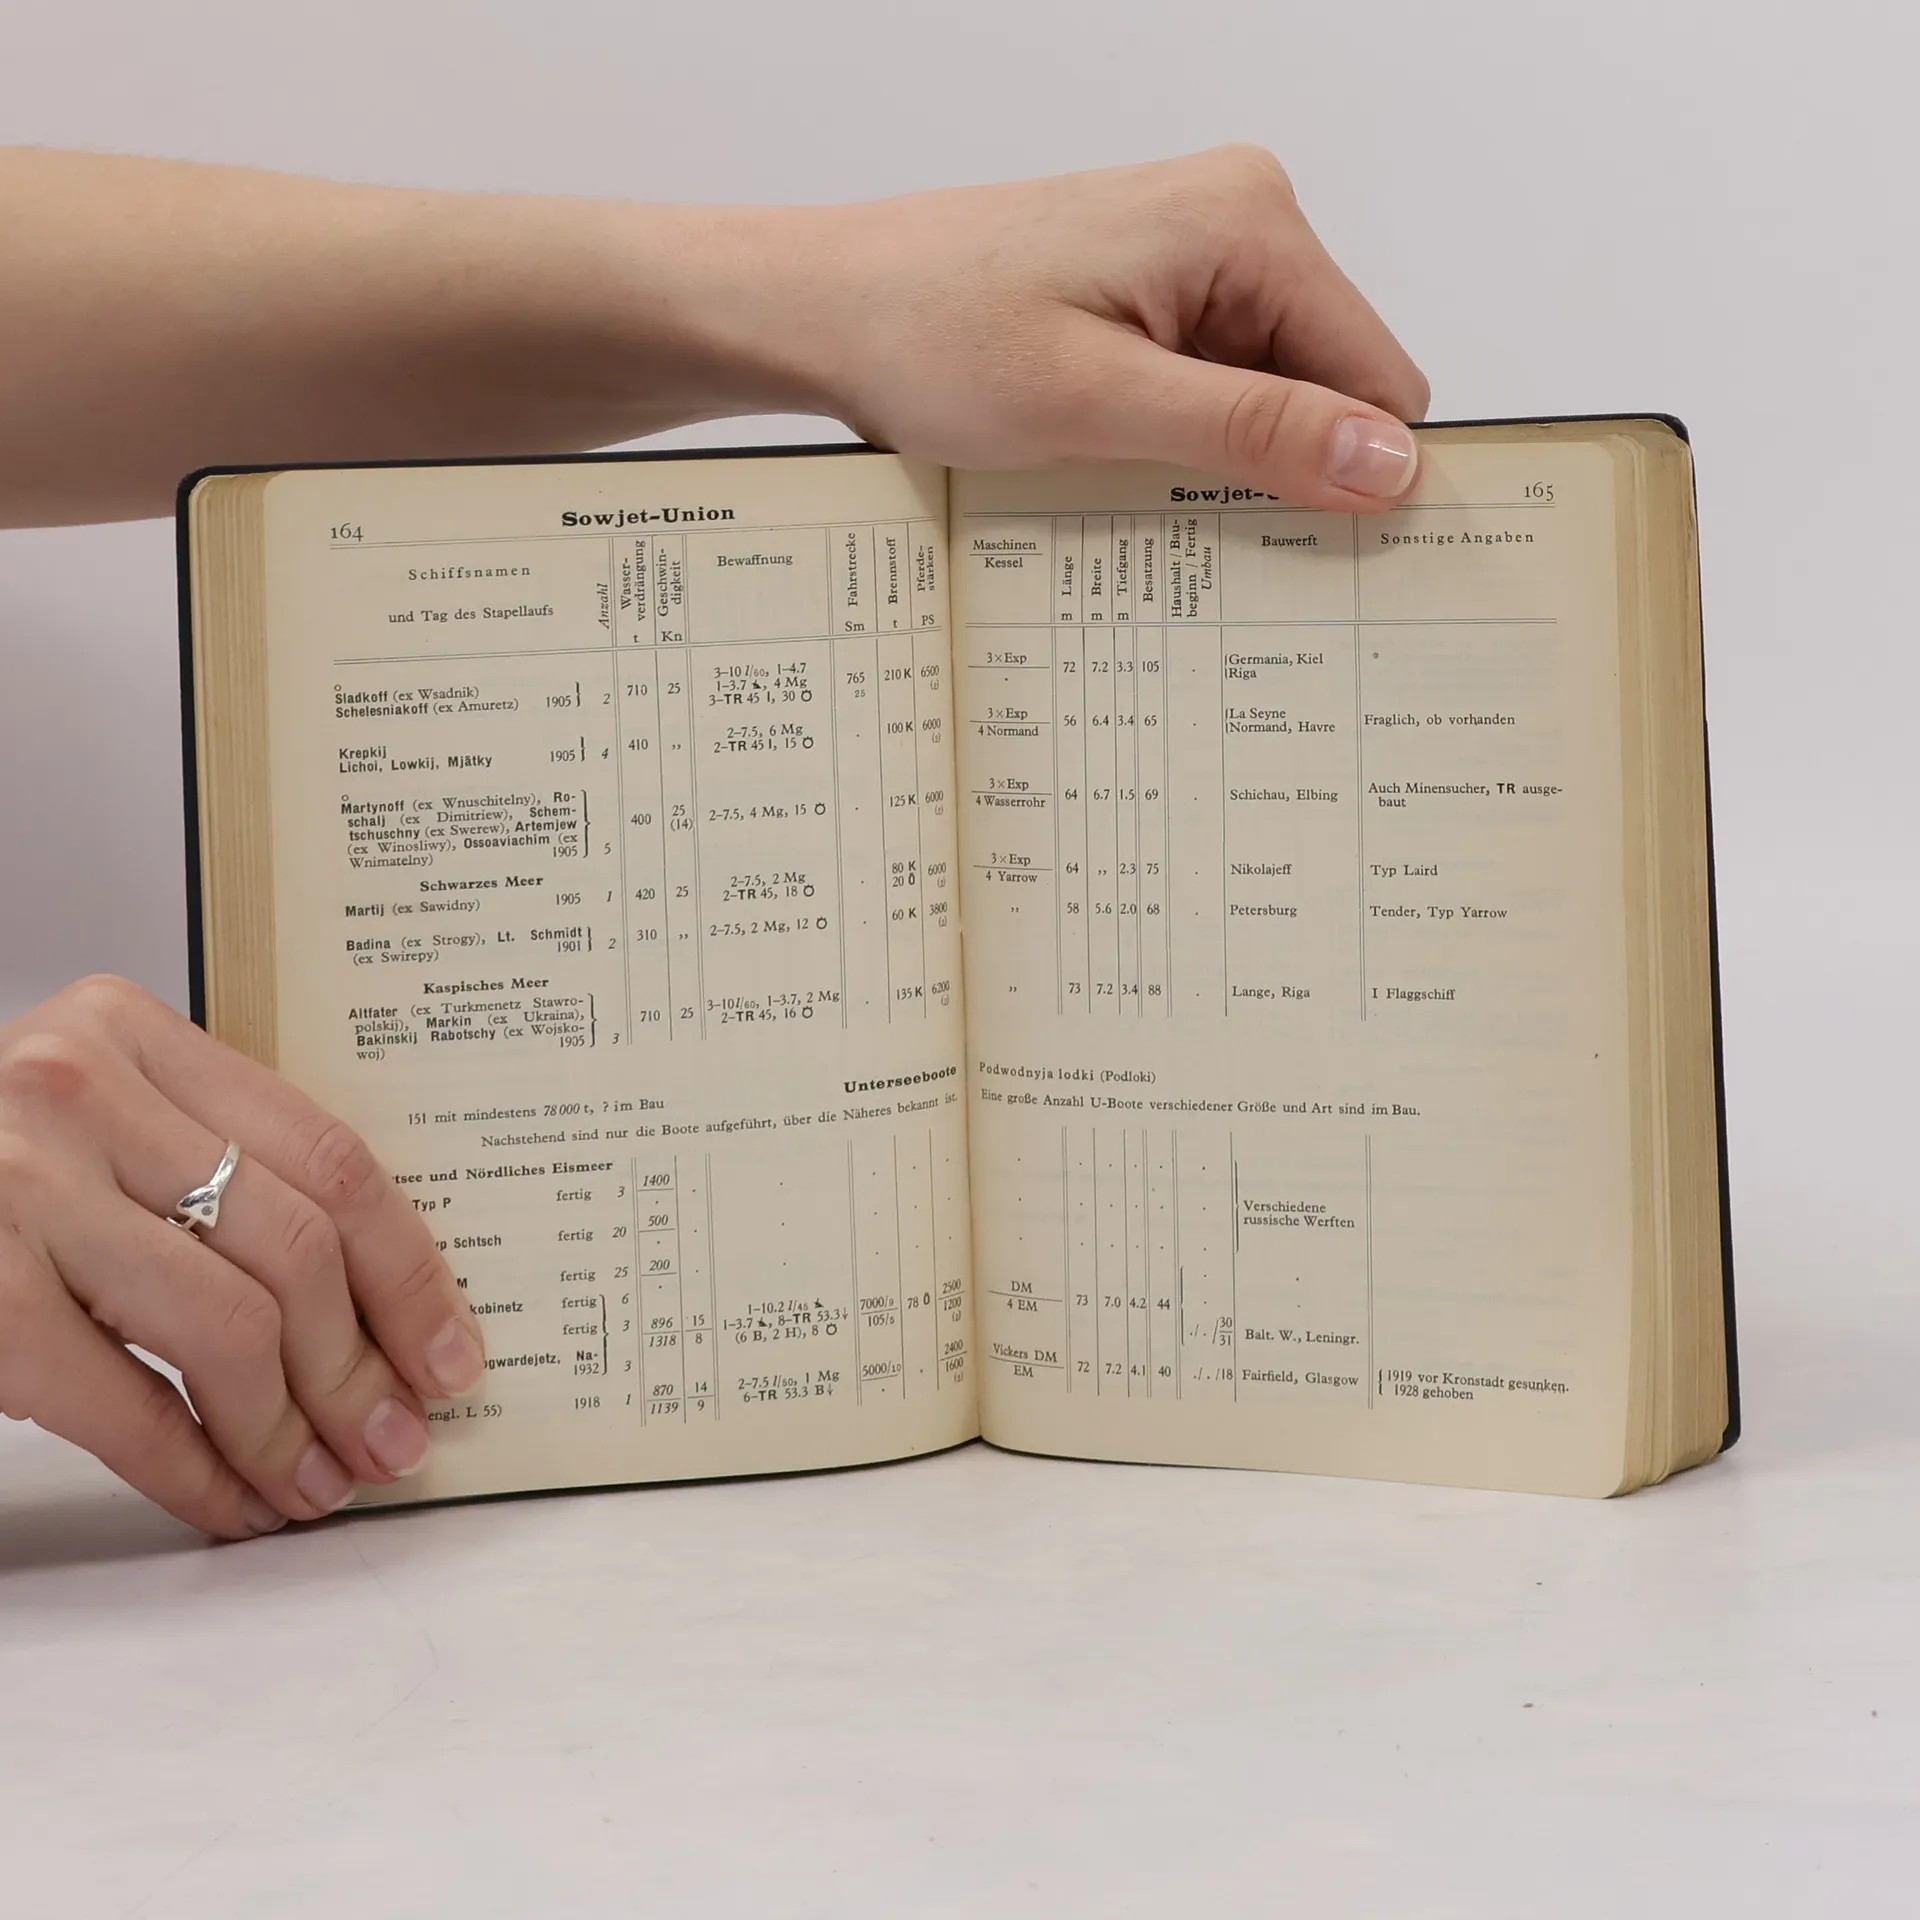 164
Sowjet-Union
Schiffsnamen
und Tag des Stapellaufs
Anzahl
Wasser-
verdrängung
t
Geschwin-
digkeit
Kn
Bewaffnung
Fahrstrecke
Sm
Brennstoff
t
Pferde-
stärken
PS
Sladkoff (ex Wsadnik)
Schelesniakoff (ex Amuretz) 1905 } 2 710 25
3–10 l/60, 1–4.7
1–3.7, 4 Mg
3–TR 45 I, 30
765
25
210 K 6500
(2)
Krepkij
Lichoi, Lowkij, Mjätky 1905 } 4 410 ,,
2–7.5, 6 Mg
2–TR 45 I, 15
. 100 K 6000
(2)
Martynoff (ex Wnuschitelny), Ro-
schalj (ex Dimitriew), Schem-
tschuschny (ex Swerew), Artemjew
(ex Winosliwy), Ossoaviachim (ex
Wnimatelny) 1905 } 5 400 25
(14)
2–7.5, 4 Mg, 15
. 125 K 6000
(2)
Schwarzes Meer
Martij (ex Sawidny) 1905 1 420 25
2–7.5, 2 Mg
2–TR 45, 18
. 80 K
20 Ö
6000
(2)
Badina (ex Strogy), Lt. Schmidt
(ex Swirepy) 1901 } 2 310 ,,
2–7.5, 2 Mg, 12
. 60 K 3800
(2)
Kaspisches Meer
Altfater (ex Turkmenetz Stawro-
polskij), Markin (ex Ukraina),
Bakinskij Rabotschy (ex Wojsko-
woj) 1905 } 3 710 25
3–10 l/60, 1–3.7, 2 Mg
2–TR 45, 16
. 135 K 6200
(2)
Unterseeboote
151 mit mindestens 78000 t, ? im Bau
Nachstehend sind nur die Boote aufgeführt, über die Näheres bekannt ist.
und Nördliches Eismeer
Typ P fertig 3 1400
Schtsch fertig 20 500
M fertig 25 200
fertig 6
fertig 3 896
1318
15
8
1–10.2 l/45
1–3.7, 8–TR 53.3↓
(6 B, 2 H), 8
7000/9
105/5
78 Ö 2500
1200
(2)
Na-
1932 } 3
1918 1 870
1139
14
9
2–7.5 l/50, 1 Mg
6–TR 53.3 B↓
5000/10 . 2400
1600
(2)
engl. L 55)
165
Maschinen
Kessel
Länge
m
Breite
m
Tiefgang
m
Besatzung
Haushalt / Bau-
beginn / Fertig
Umbau
Bauwerft
Sonstige Angaben
3×Exp
72 7.2 3.3 105 . Germania, Kiel
Riga
3×Exp
4 Normand
56 6.4 3.4 65 . La Seyne
Normand, Havre
Fraglich, ob vorhanden
3×Exp
4 Wasserrohr
64 6.7 1.5 69 . Schichau, Elbing
Auch Minensucher, TR ausge-
baut
3×Exp
4 Yarrow
64 ,, 2.3 75 . Nikolajeff Typ Laird
,, 58 5.6 2.0 68 . Petersburg Tender, Typ Yarrow
,, 73 7.2 3.4 88 . Lange, Riga I Flaggschiff
Podwodnyja lodki (Podloki)
Eine große Anzahl U-Boote verschiedener Größe und Art sind im Bau.
Verschiedene
russische Werften
DM
4 EM
73 7.0 4.2 44
./. /30
31
Balt. W., Leningr.
Vickers DM
EM
72 7.2 4.1 40 ./. /18 Fairfield, Glasgow
1919 vor Kronstadt gesunken.
1928 gehoben